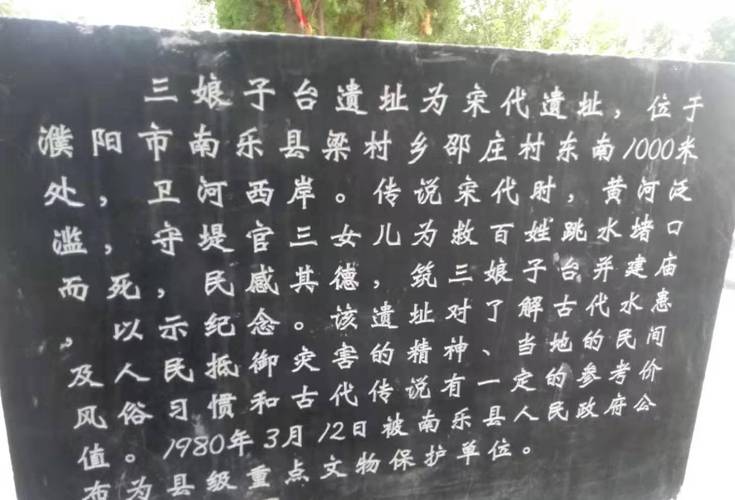 三娘子台遗址为宋代遗址，位于
濮阳市南乐县梁村乡邵庄村东南1000米
处，卫河西岸。传说宋代时，黄河泛
滥，守堤官三女儿为救百姓跳水堵口
而死，民感其德，筑三娘子台并建庙
，以示纪念。该遗址对了解古代水患
及人民抵御灾害的精神、当地的民间
风俗习惯和古代传说有一定的参考价
值。1980年3月12日被南乐县人民政府公
布为县级重点文物保护单位。